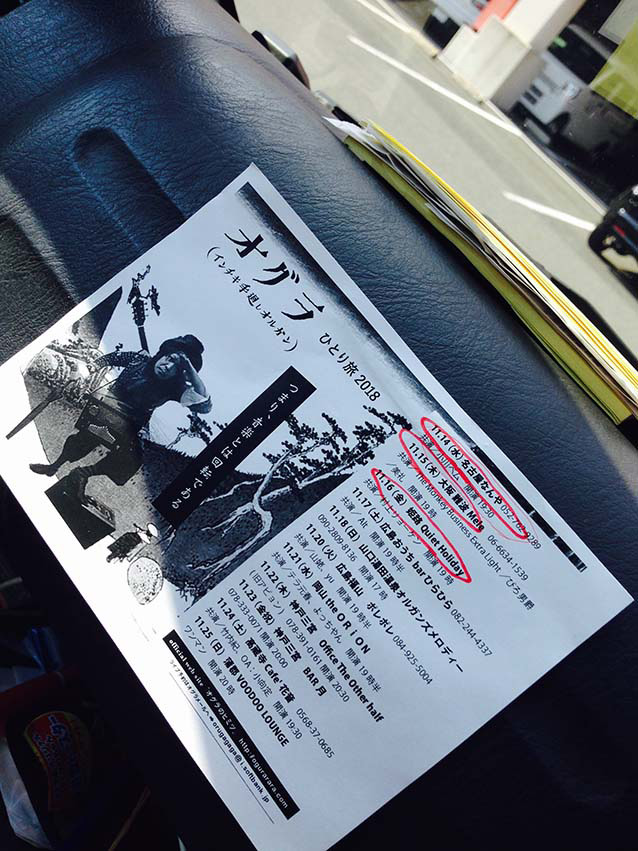 オグラ
(インチキ手廻しオルガン)
ひとり旅 2018
つまり、音楽とは回転である
11.14 (水) 名古屋なんや
開演 19:30
11.15 (木) 大阪 難波 Mele 06-6634-1539
共演／The Money Business Extra Light.／ぴろ男爵
美礼 開演 19時
11.16 (金) 姫路 Quiet Holiday
開演 19時
11.17(土) 広島 おうち bar ひらひら 082-244-4337
共演／Ah 開演 19時半
11.18 (日) 山口湯田温泉オルガンズメロディー
090-2809-8136 開演 17時
11.20 (火) 広島福山 ポレポレ 084-925-5004
開演 19時半
11.21 (水) 岡山 the O R I ON
共演／テラ元春、よっちゃん 開演 19時半
11.22 (木) 神戸三宮 Office The Other half
(旧アビョーン) 078-39 -0161 開演 20:30
11.23 (金・祝) 神戸三宮 BAR 月
078-333-007 開演 20:00
11.24 (土) 高蔵寺 Cafe 花茶 0568-37-0685
共演／竹内紀、OA・小向定 開演 19:30
11.25 (日) 蒲郡 VOODOO LOUNGE
ワンマン 開演 20時
official website オグラのヒミツ。http://ogurarara.com
ライブ予約はオグラメールへ➡orugagaga@i.softbank.jp